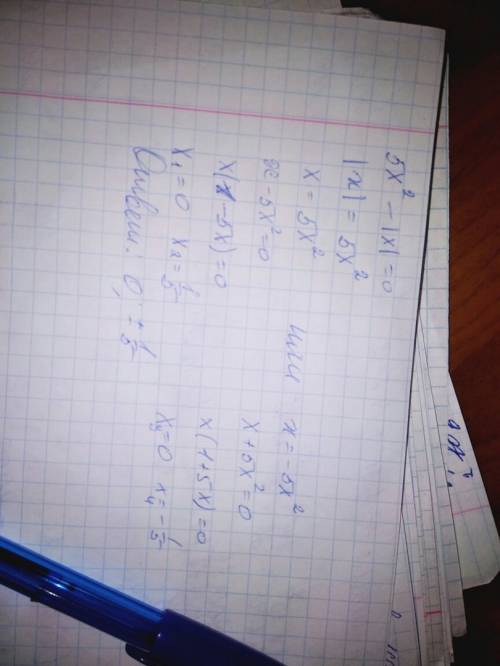 5x² - |x| = 0
|x| = 5x²
x = 5x² или x = -5x²
x - 5x² = 0 x + 5x² = 0
x(1 - 5x) = 0 x(1 + 5x) = 0
x₁ = 0 x₂ = 1/5 x₃ = 0 x₄ = -1/5
Ответ: 0; ± 1/5